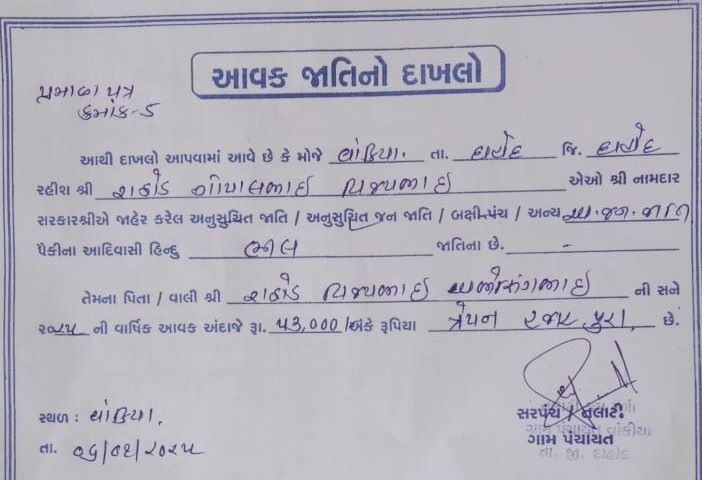 આવક જાતિનો દાખલો
પ્રમાણ પત્ર
ક્રમાંક-૬
આથી દાખલો આપવામાં આવે છે કે મોજે વાંકિયા. તા. દાહોદ જિ. દાહોદ
રહીશ શ્રી રાઠોડ ગોપાલભાઈ એઓ શ્રી નામદાર
સરકારશ્રીએ જાહેર કરેલ અનુસુચિત જાતિ / અનુસુચિત જન જાતિ / બક્ષીપંચ / અન્ય અ.જન.જાતિ
પૈકીના આદિવાસી હિન્દુ ભીલ જાતિના છે. -
તેમના પિતા / વાલી શ્રી રાઠોડ ની સને
૨૦૨૫ ની વાર્ષિક આવક અંદાજે રૂા. ૫૩,૦૦૦/અંકે રૂપિયા ત્રેપન હજાર પુરા. છે.
સરપંચ / તલાટી
સ્થળ : વાંકિયા.
ગામ પંચાયત વાંકીયા
ગામ પંચાયત
તા. ૦૬/૦૬/૨૦૨૫
તા. જી. દાહોદ